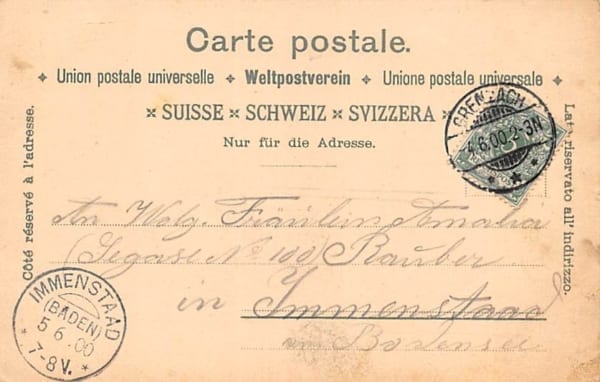 Carte postale.
Union postale universelle ✦ Weltpostverein ✦ Unione postale universale
SUISSE × SCHWEIZ × SVIZZERA
Nur für die Adresse.
Côté réservé à l'adresse.
Lat. riservato all' indirizzo.
GRENZACH
4.6.00.2-3N
An Wolg. Fräulein Amalia
(No 100) Rauber
in Immenstaad
am Bodensee
IMMENSTAAD
(BADEN)
5 6 00
7-8V.